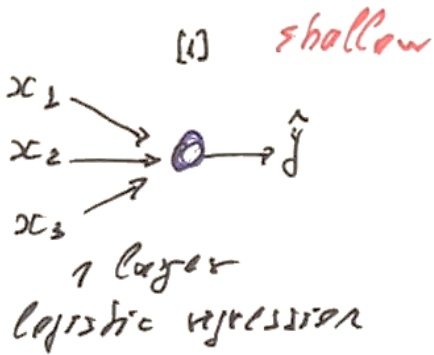 [1] shallow
x1
x2
ŷ
x3
1 layer
logistic regression